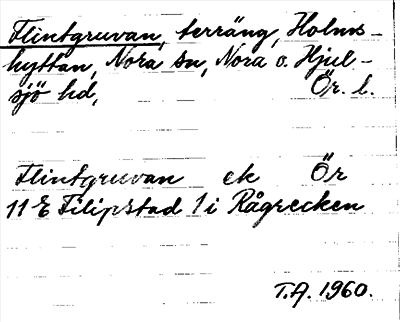 Flintgruvan, terräng, Holms-
hyttan, Nora sn, Nora o. Hjul-
sjö hd, Ör. l.
Flintgruvan ek Ör
11 E Filipstad 1 i Rågrecken
T.A. 1960.